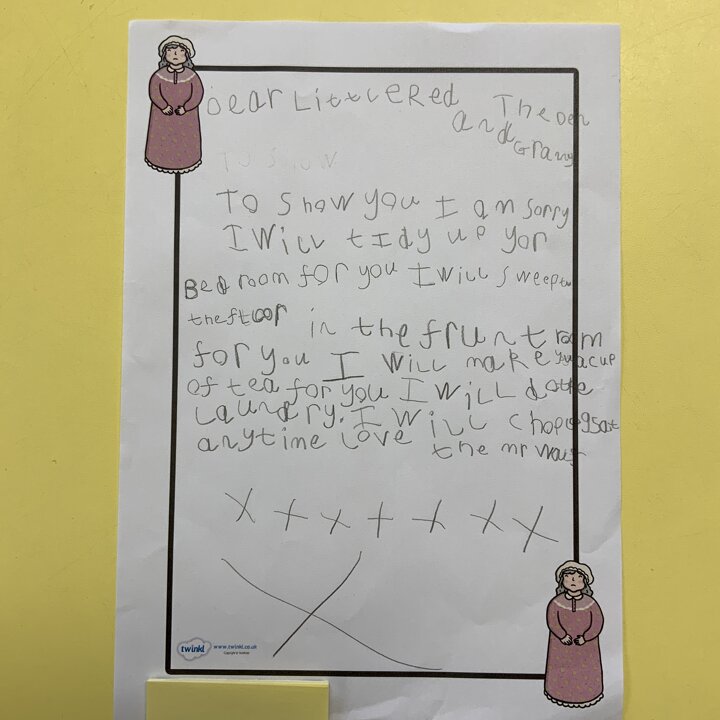 Dear Little Red
and
The Den
Grany
To Show
To Show you I am Sorry
I will tidy up yor
Bed room for you I will sweep
the floor in the frunt room
for you I will make you a cup
of tea for you I will do the
Laundry. I will chop logs at
anytime love the mr wolf
x x x x x x x
X
twinkl www.twinkl.co.uk